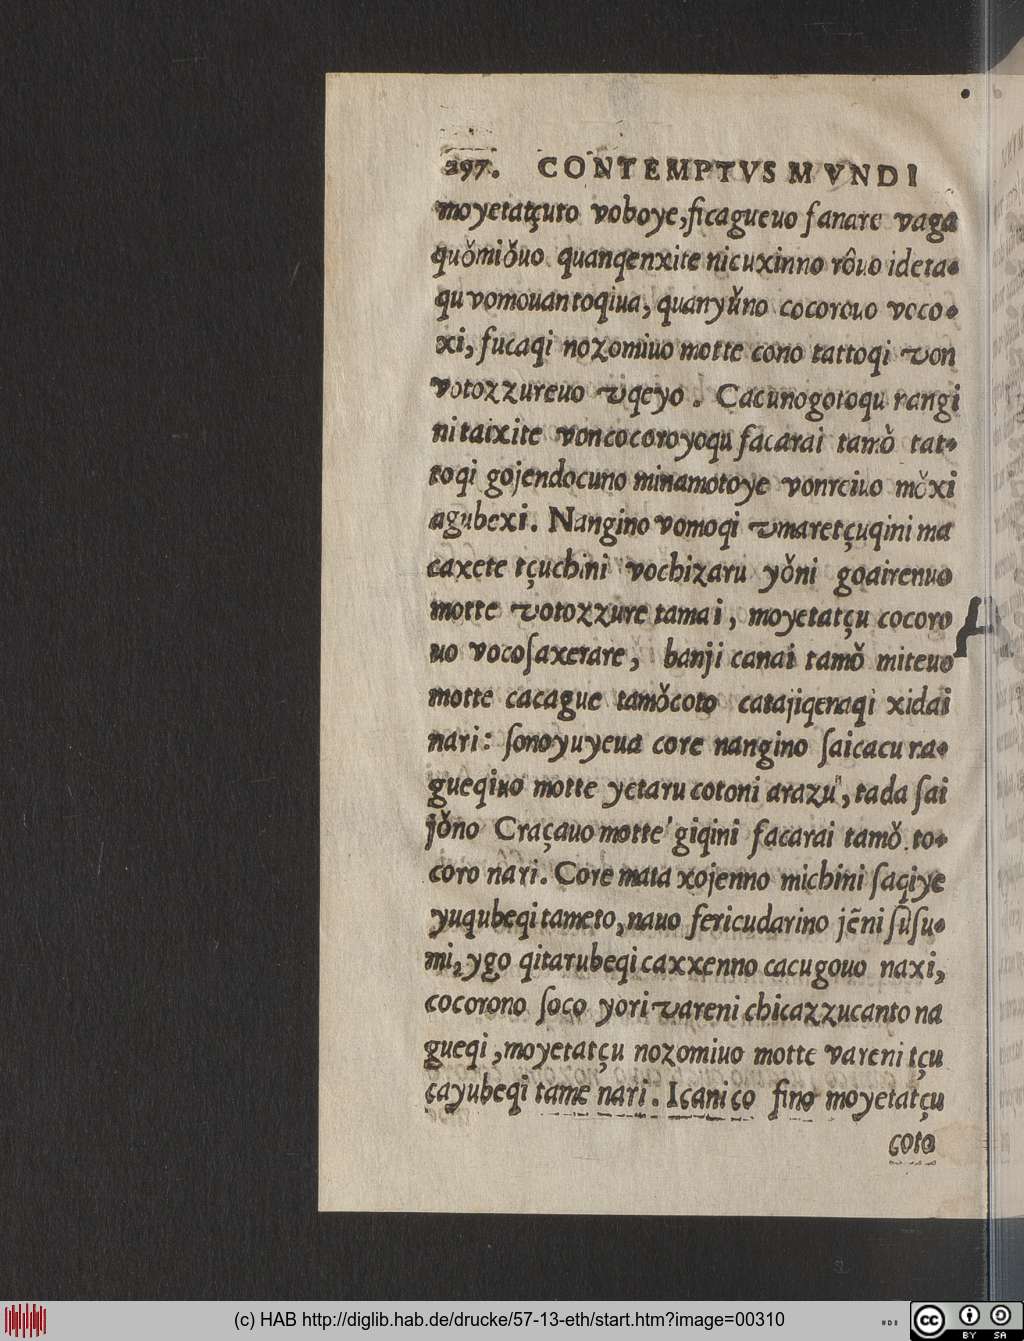 297. CONTEMPTVS MVNDI
moyetatçuro voboye, ſicagueuo ſanare vaga
quǒmiǒuo quanqenxite nicuxinno rôuo ideta-
qu vomouan toqiua, quanyǔno cocorouo voco-
xi, fucaqi nozomiuo motte cono tattoqi von
votozzureuo vqeyo. Cacunogotoqu nangi
ni taixite voncocoroyoqu facarai tamǒ tat-
toqi gojendocuno minamotoye vonreiuo mǒxi
agubexi. Nangino vomoqi vmaretçuqini ma
caxete tçuchini vochizaru yǒni goairenuo
motte votozzure tamai, moyetatçu cocoro
uo vocoſaxerare, banji canai tamǒ miteuo
motte cacague tamǒcoto catajiqenaqi xidai
nari: ſonoyuyeua core nangino ſaicacu na-
gueqiuo motte yetaru cotoni arazu, tada ſai
jǒno Craçauo motte giqini facarai tamǒ to-
coro nari. Core mata xojenno michini ſaqiye
yuqubeqi tameto, nauo fericudarino jẽni ſũſu-
mi, ygo qitarubeqi caxxenno cacugouo naxi,
cocorono ſoco yori vareni chicazzucanto na
gueqi, moyetatçu nozomiuo motte vareni tçu
cayubeqi tame nari. Icanico fino moyetatçu
coto
(c) HAB http://diglib.hab.de/drucke/57-13-eth/start.htm?image=00310
cc BY SA